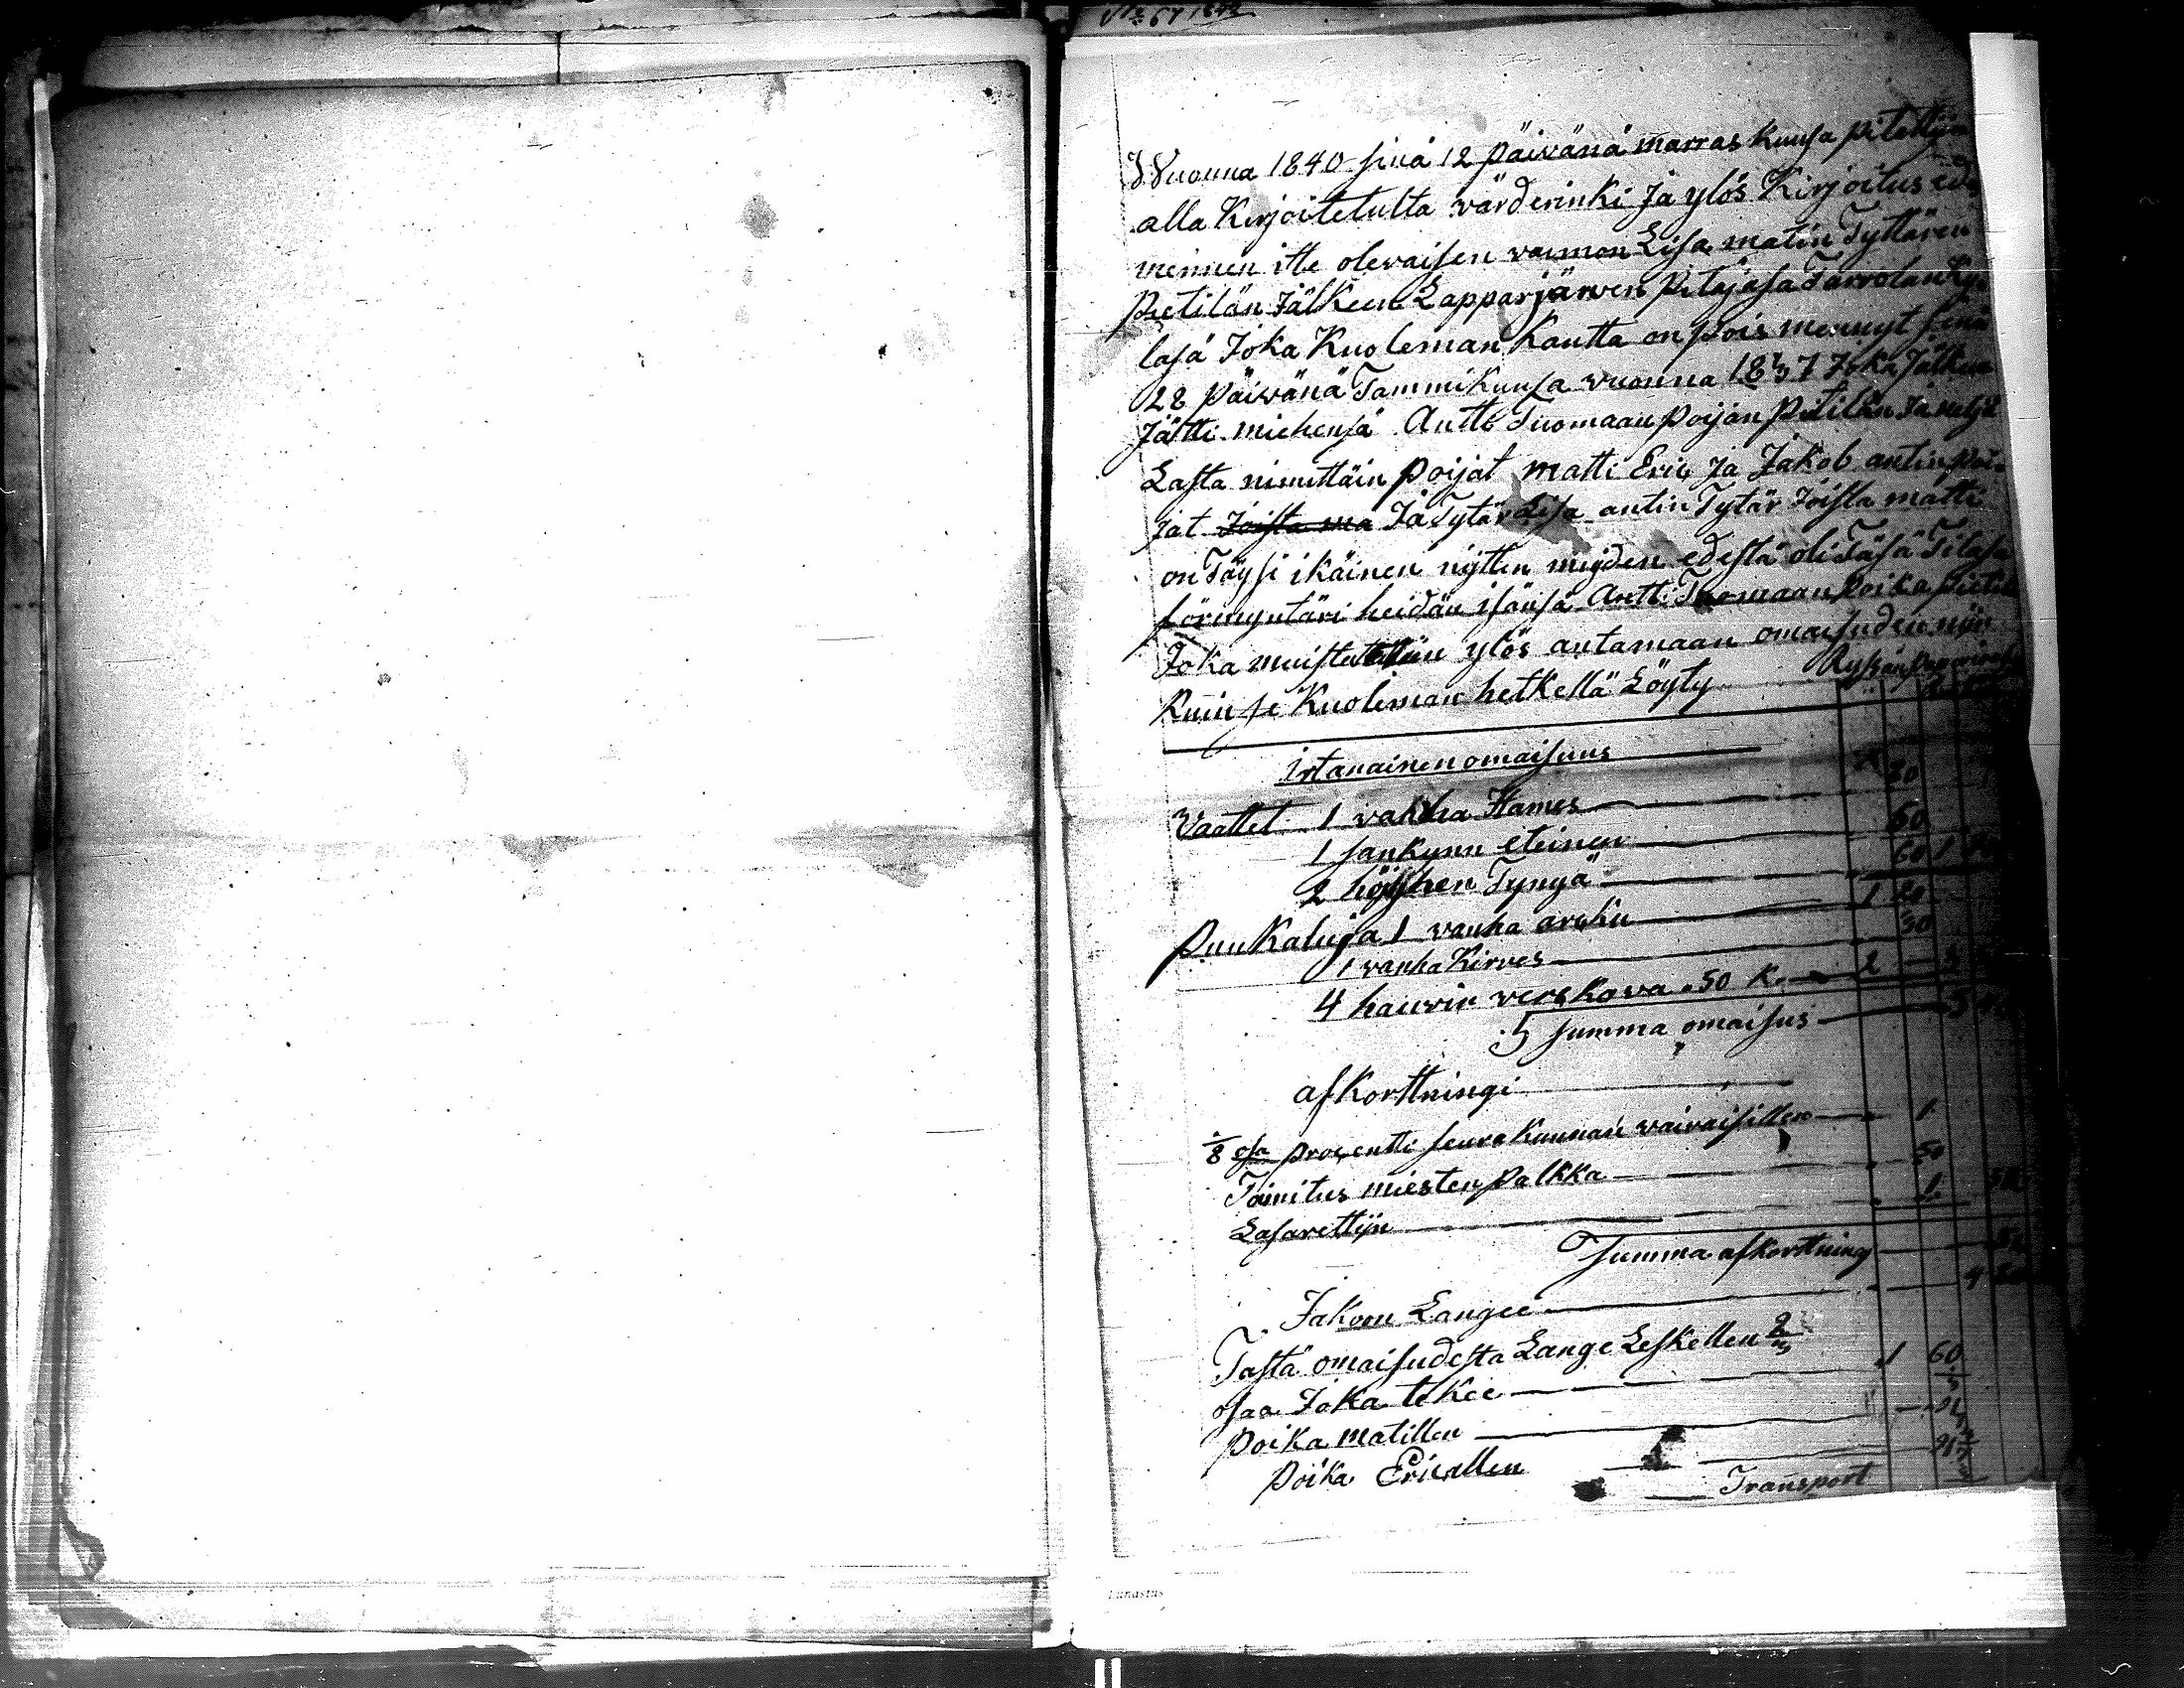 No 67 1842
Wuonna 1840 sinä 12 päivänä marras Kuusa pitettijn
alla Kirjoitetulta värderinki Ja ylös Kirjoitus ede
mennen itte olevaisen vaimon Lisa matin Tyttären
Pietilän Jälkeen Lappärjärven pitäjäsä Tarvolan Ky-
läsä Joka Kuoleman Kautta on pois mennyt sinä
28 päivänä Tammikuusa vuonna 1837 Joka Jälkeen
Jätti miehensä Antti Tuomaan poijan Pietilän Ja neljä
Lasta nimittäin poijat matti Eric Ja Jakob antin poi-
jat Joista ma Ja Tytär Lisa antin Tytär Joista matti
on Täysi ikäinen nytten muiden edestä oli Täsä Tilasa
förmyntäri heidän isänsä Antti Tuomaan Poika Pietilä
Joka muistutettiin ylös antamaan omaisuden niin
Kuin se Kuoleman hetkellä Löyty
irtanainen omaisuus
Vaattet 1 vanha Hames 20
1 sankynn eteinen 60
2 höyhen Tynyä 60 1
Puu Kaluja 1 vanha arcku 1 20
1 vanha Kirves 30
4 hauvir verskova a 50 K. 2
summa omaisus 5
afkorttningi
1/8 osa prosentti seurakunnan vaivaisillen 1
Toimitus miesten palkka 50
Lasarettijn 1 52
Summa afkorttning
Jakoon Langee 4
Tästä omaisudesta Lange Leskellen 2/3
osaa Joka tekee 1 60
Poika matillen
poika Ericallen
Transport
Lunastus